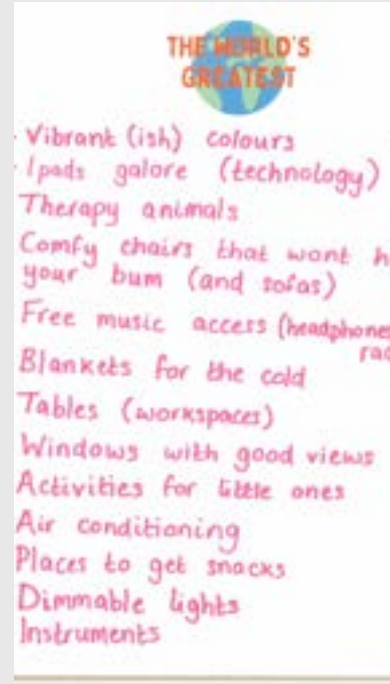 THE WORLD'S
GREATEST
- Vibrant (ish) colours
- Ipads galore (technology)
Therapy animals
Comfy chairs that wont h
your bum (and sofas)
Free music access (headphones
rad
Blankets for the cold
Tables (workspaces)
Windows with good views
Activities for little ones
Air conditioning
Places to get snacks
Dimmable lights
Instruments